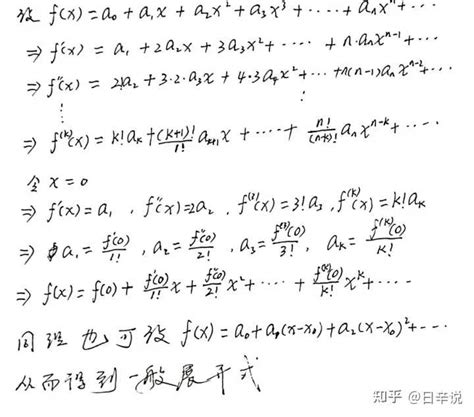 设 f(x) = a₀ + a₁x + a₂x² + a₃x³ + ···· + aₙxⁿ + ···
⇒ f'(x) = a₁ + 2a₂x + 3a₃x² + ··· + n·aₙxⁿ⁻¹ + ···
⇒ f''(x) = 2a₂ + 3·2·a₃x + 4·3a₄x² + ··· + n(n-1)aₙxⁿ⁻² + ···
⋮ ⋮
⇒ f⁽ᵏ⁾(x) = k!aₖ + (k+1)!/1! aₖ₊₁x + ···· + n!/(n-k)! aₙxⁿ⁻ᵏ + ···
令 x = 0
⇒ f'(x) = a₁ , f''(x) = 2a₂ , f⁽³⁾(x) = 3!a₃ , f⁽ᵏ⁾(x) = k!aₖ
⇒ a₁ = f'(0)/1! , a₂ = f''(0)/2! , a₃ = f⁽³⁾(0)/3! , aₖ = f⁽ᵏ⁾(0)/k!
⇒ f(x) = f(0) + f'(0)/1! x + f''(0)/2! x² + ···· + f⁽ᵏ⁾(0)/k! xᵏ + ···
同理也可设 f(x) = a₀ + a₁(x-x₀) + a₂(x-x₀)² + ···
从而得到一般展开式
知乎 @日辛说